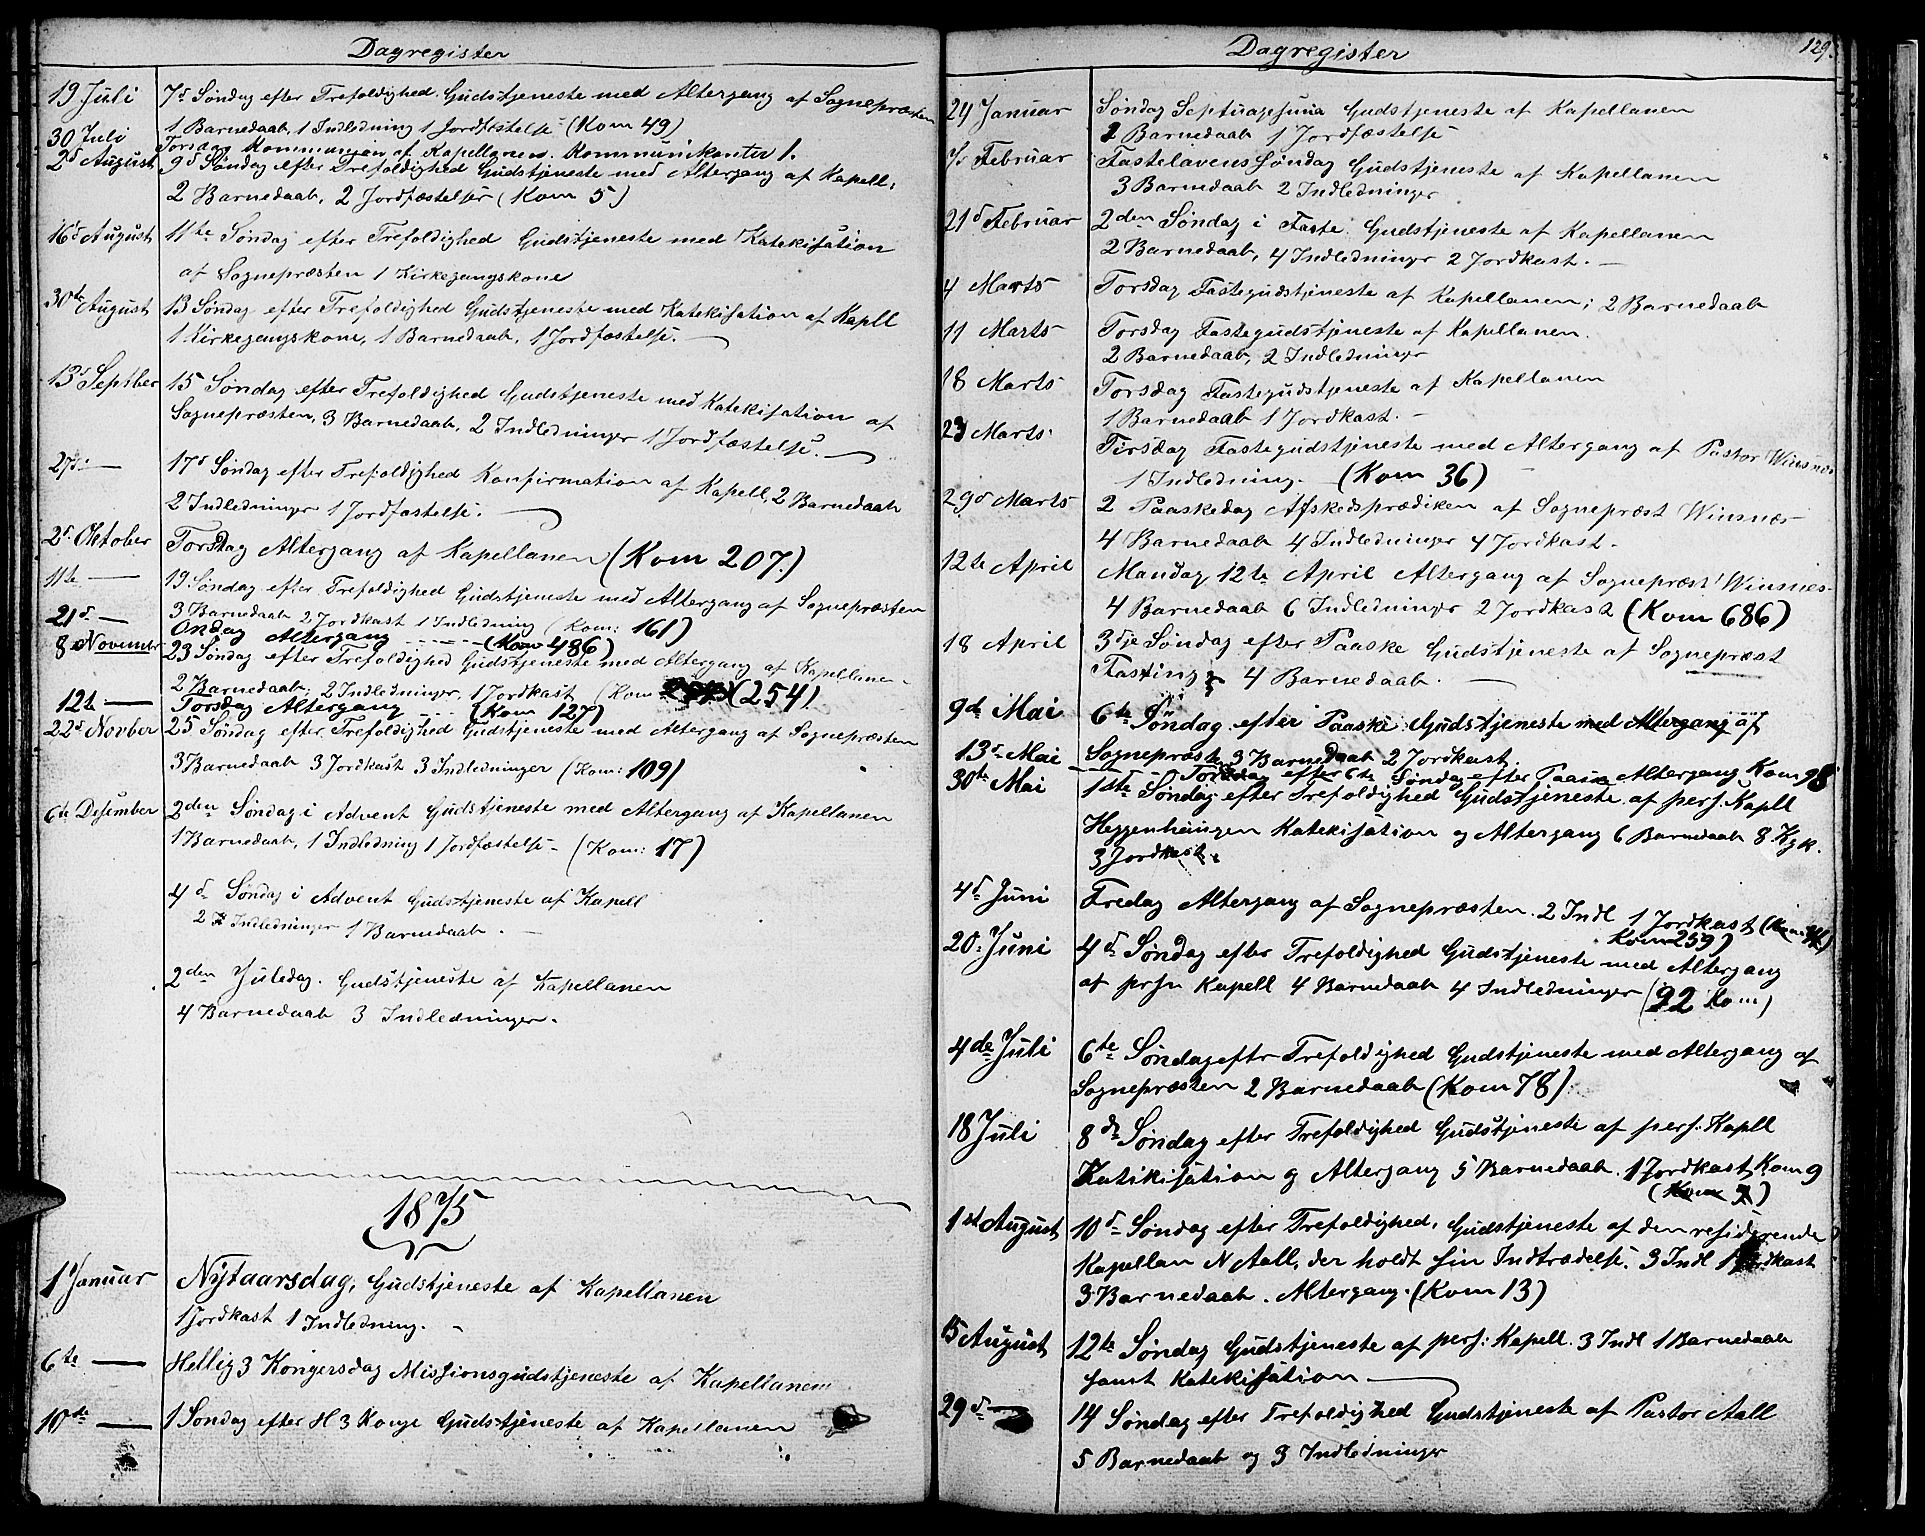 Dagregister
19 Juli 7d Søndag efter Trefoldighed. Gudstjeneste med Altergang af Sognepræsten
1 Barnedaab, 1 Indledning 1 Jordfæstelse (Kom 49)
30 Juli Torsdag Kommunion af Kapellanen. Kommunikanter 1.
2d August 9d Søndag efter Trefoldighed Gudstjeneste med Altergang af Kapell.
2 Barnedaab, 2 Jordfæstelser (Kom 5)
16d August 11te Søndag efter Trefoldighed Gudstjeneste med Katekisation
af Sognepræsten 1 Kirkegangskone
30te August 13 Søndag efter Trefoldighed Gudstjeneste med Katekisation af Kapll
1 Kirkegangskone, 1 Barnedaab, 1 Jordfæstelse.
13d Septber 15 Søndag efter Trefoldighed Gudstjeneste med Katekisation af
Sognepræsten, 3 Barnedaab, 2 Indledninger 1 Jordfæstelse.
27d — 17d Søndag efter Trefoldighed Konfirmation af Kapell, 2 Barnedaab
2 Indledninger 1 Jordfæstelse.
2d Oktober Torsdag Altergang af Kapellanen (Kom 207.)
11te — 19 Søndag efter Trefoldighed Gudstjeneste med Altergang af Sognepræsten
3 Barnedaab 2 Jordkast 1 Indledning (Kom: 161)
21d — Onsdag Altergang - - - - (Kom 486)
8 November 23 Søndag efter Trefoldighed Gudstjeneste med Altergang af Kapellanen
2 Barnedaab; 2 Indledninger, 1 Jordkast (Kom (254)
12te — Torsdag Altergang - - - (Kom 127)
22d Novber 25 Søndag efter Trefoldighed Gudstjeneste med Altergang af Sognepræsten
3 Barnedaab 3 Jordkast 3 Indledninger (Kom: 109)
6te Desember 2den Søndag i Advent Gudstjeneste med Altergang af Kapellanen
1 Barnedaab, 1 Indledning 1 Jordfæstelse - (Kom: 17)
4d Søndag i Advent Gudstjeneste af Kapell
2 Indledninger 1 Barnedaab.
2den Juledag. Gudstjeneste af Kapellanen
4 Barnedaab 3 Indledninger.
1875
1 Januar Nytaarsdag, Gudstjeneste af Kapellanen
1 Jordkast 1 Indledning.
6te — Hellig 3 Kongersdag Missionsgudstjeneste af Kapellanen
10de — 1 Søndag efter H 3 Konge Gudstjeneste af Kapellanen
Dagregister 129.
24 Januar Søndag Septuagesima Gudstjeneste af Kapellanen
2 Barnedaab 1 Jordfæstelse
Februar Fastelavens Søndag Gudstjeneste af Kapellanen
3 Barnedaab 2 Indledninger
21d Februar 2den Søndag i Faste. Gudstjeneste af Kapellanen
2 Barnedaab, 4 Indledninger 2 Jordkast. —
4 Marts Torsdag Fastegudstjeneste af Kapellanen; 2 Barnedaab
11 Marts Torsdag Fastegudstjeneste af Kapellanen.
2 Barnedaab, 2 Indledninger
18 Marts Torsdag Fastegudstjeneste af Kapellanen
1 Barnedaab 1 Jordkast. -
23 Marts Tirsdag Fastegudstjeneste med Altergang af Pastor Winsnes
1 Indledning. - (Kom 36)
29d Marts 2 Paaskedag Afskedsprædiken af Sognepræst Winsnes
4 Barnedaab 4 Indledninger 4 Jordkast.
12te April Mandag 12te April Altergang af Sognepræst Winsnes-
4 Barnedaab 6 Indledninger 2 Jordkast (Kom 686)
18 April 3dje Søndag efter Paaske Gudstjeneste af Sognepræst
Fasting 4 Barnedaab.
9de Mai 6te Søndag efter Paaske Gudstjeneste med Altergang af
Sognepræsten 3 Barnedaab 2 Jordkast.
13d Mai Torsdag efter 6te Søndag efter Paaske Altergang Kom 98
30te Mai 1ste Søndag efter Trefoldighed Gudstjeneste af pers. Kapll
Heggenhaugen Katekisation og Altergang 6 Barnedaab 8 Kgk.
3 Jordkast.
4d Juni Fredag Altergang af Sognepræsten. 2 Indl 1 Jordkast
Kom 259)
20d Juni 4d Søndag efter Trefoldighed Gudstjeneste med Altergang
af prsn Kapell 4 Barnedaab 4 Indledninger (92 Kom)
4de Juli 6te Søndag eftr Trefoldighed Gudstjeneste med Altergang af
Sognepræsten 2 Barnedaab (Kom 78)
18 Juli 8de Søndag efter Trefoldighed Gudstjeneste af pers. Kapll
Katikisation og Altergang 5 Barnedaab. 1 Jordkast Kom 9
1st August 10d Søndag efter Trefoldighed. Gudstjeneste af den residerende
Kapellan N Aall, der holdt sin Indtrædelse. 3 Indl 1 Jordkast
3 Barnedaab. Altergang. (Kom 13)
15 August 12te Søndag Gudstjeneste af pers: Kapell. 3 Indl 1 Barnedaab
samt Katekisation
29d — 14 Søndag efter Trefoldighed Gudstjeneste af Pastor Aall
5 Barnedaab og 3 Indledninger